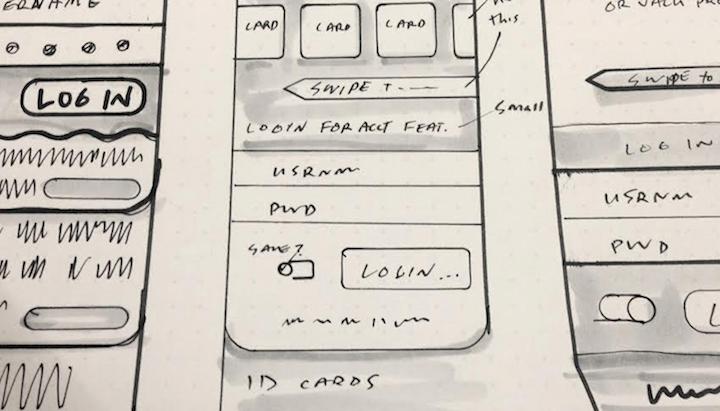 LOG IN
CARD
CARD
CARD
this
SWIPE T
small
LOGIN FOR ACCT FEAT.
USRNM
PWD
SAVE?
LOGIN...
ID CARDS
SWIPE to
LOG IN
USRNM
PWD
L